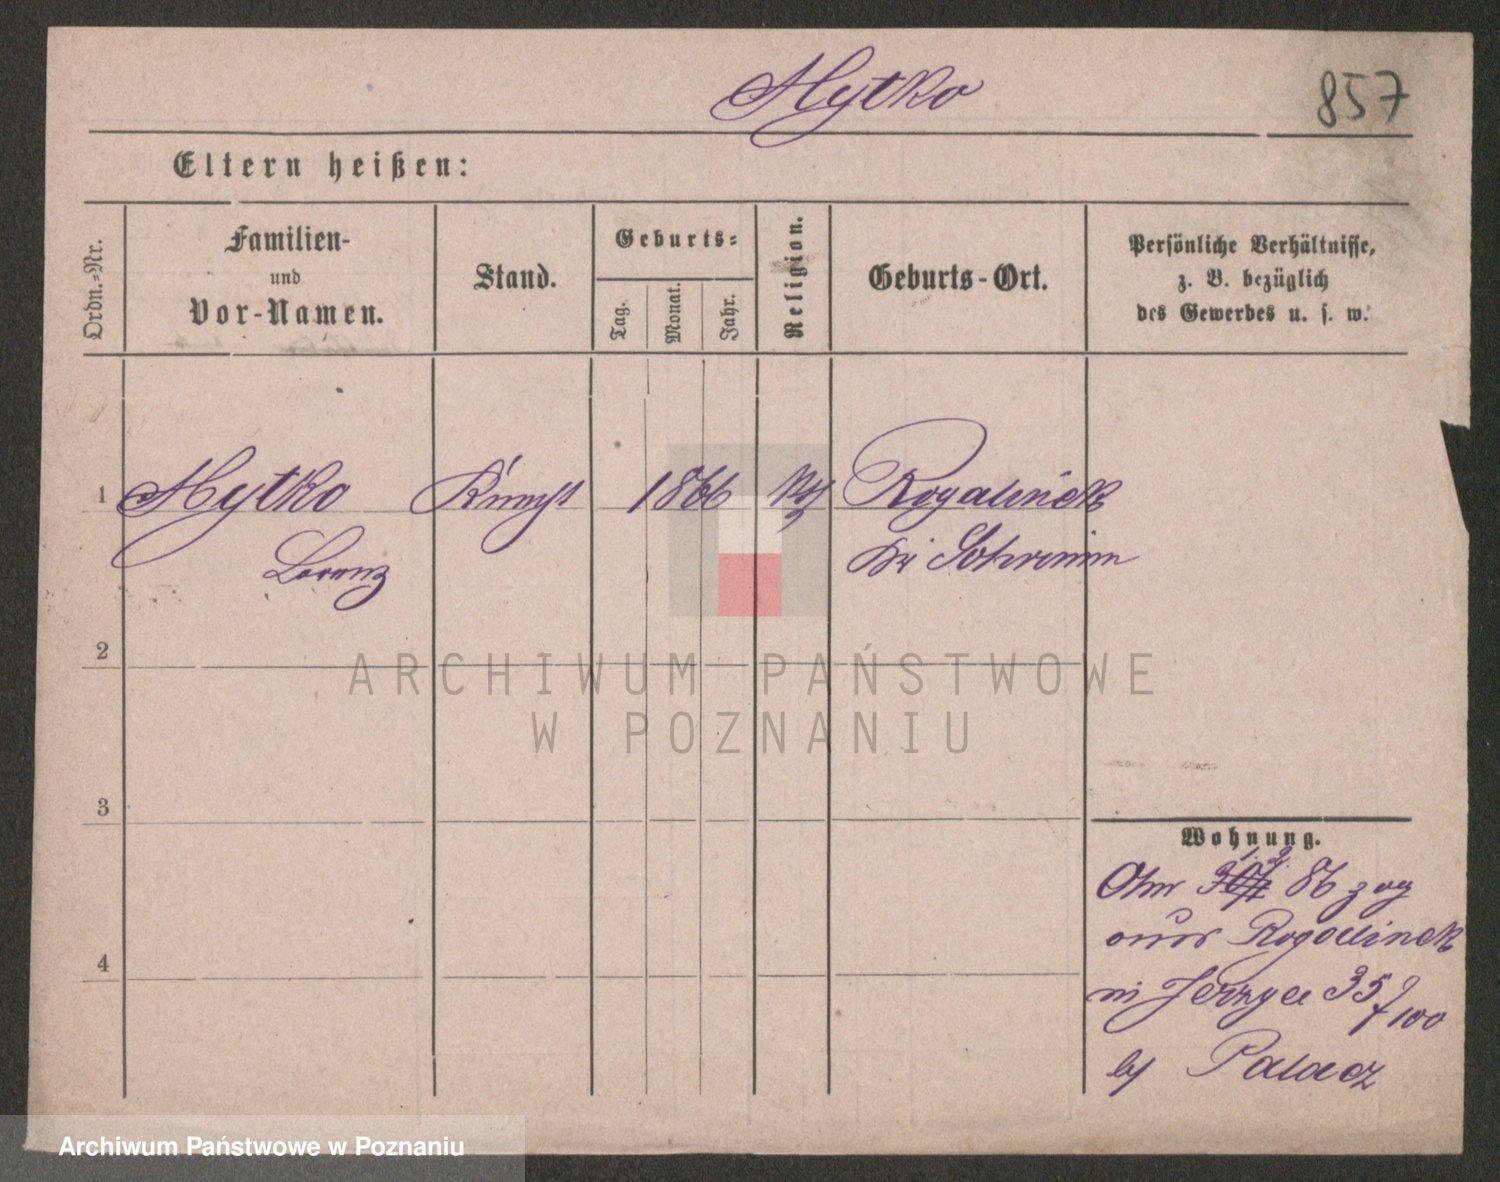 Hytko
857
Eltern heißen:
Ordn.-Nr.
Familien-
und
Vor-Namen.
Stand.
Geburts-
Tag.
Monat.
Jahr.
Religion.
Geburts-Ort.
Persönliche Verhältnisse,
z. B. bezüglich
des Gewerbes u. s. w.
1 Hytko 1866 Rogalinek
Lorenz bei Schrimm
2
3
4
Wohnung.
86 zog
aus Rogalinek
in Jerzyce 35/100
by Palacz
ARCHIWUM PAŃSTWOWE
W POZNANIU
Archiwum Państwowe w Poznaniu